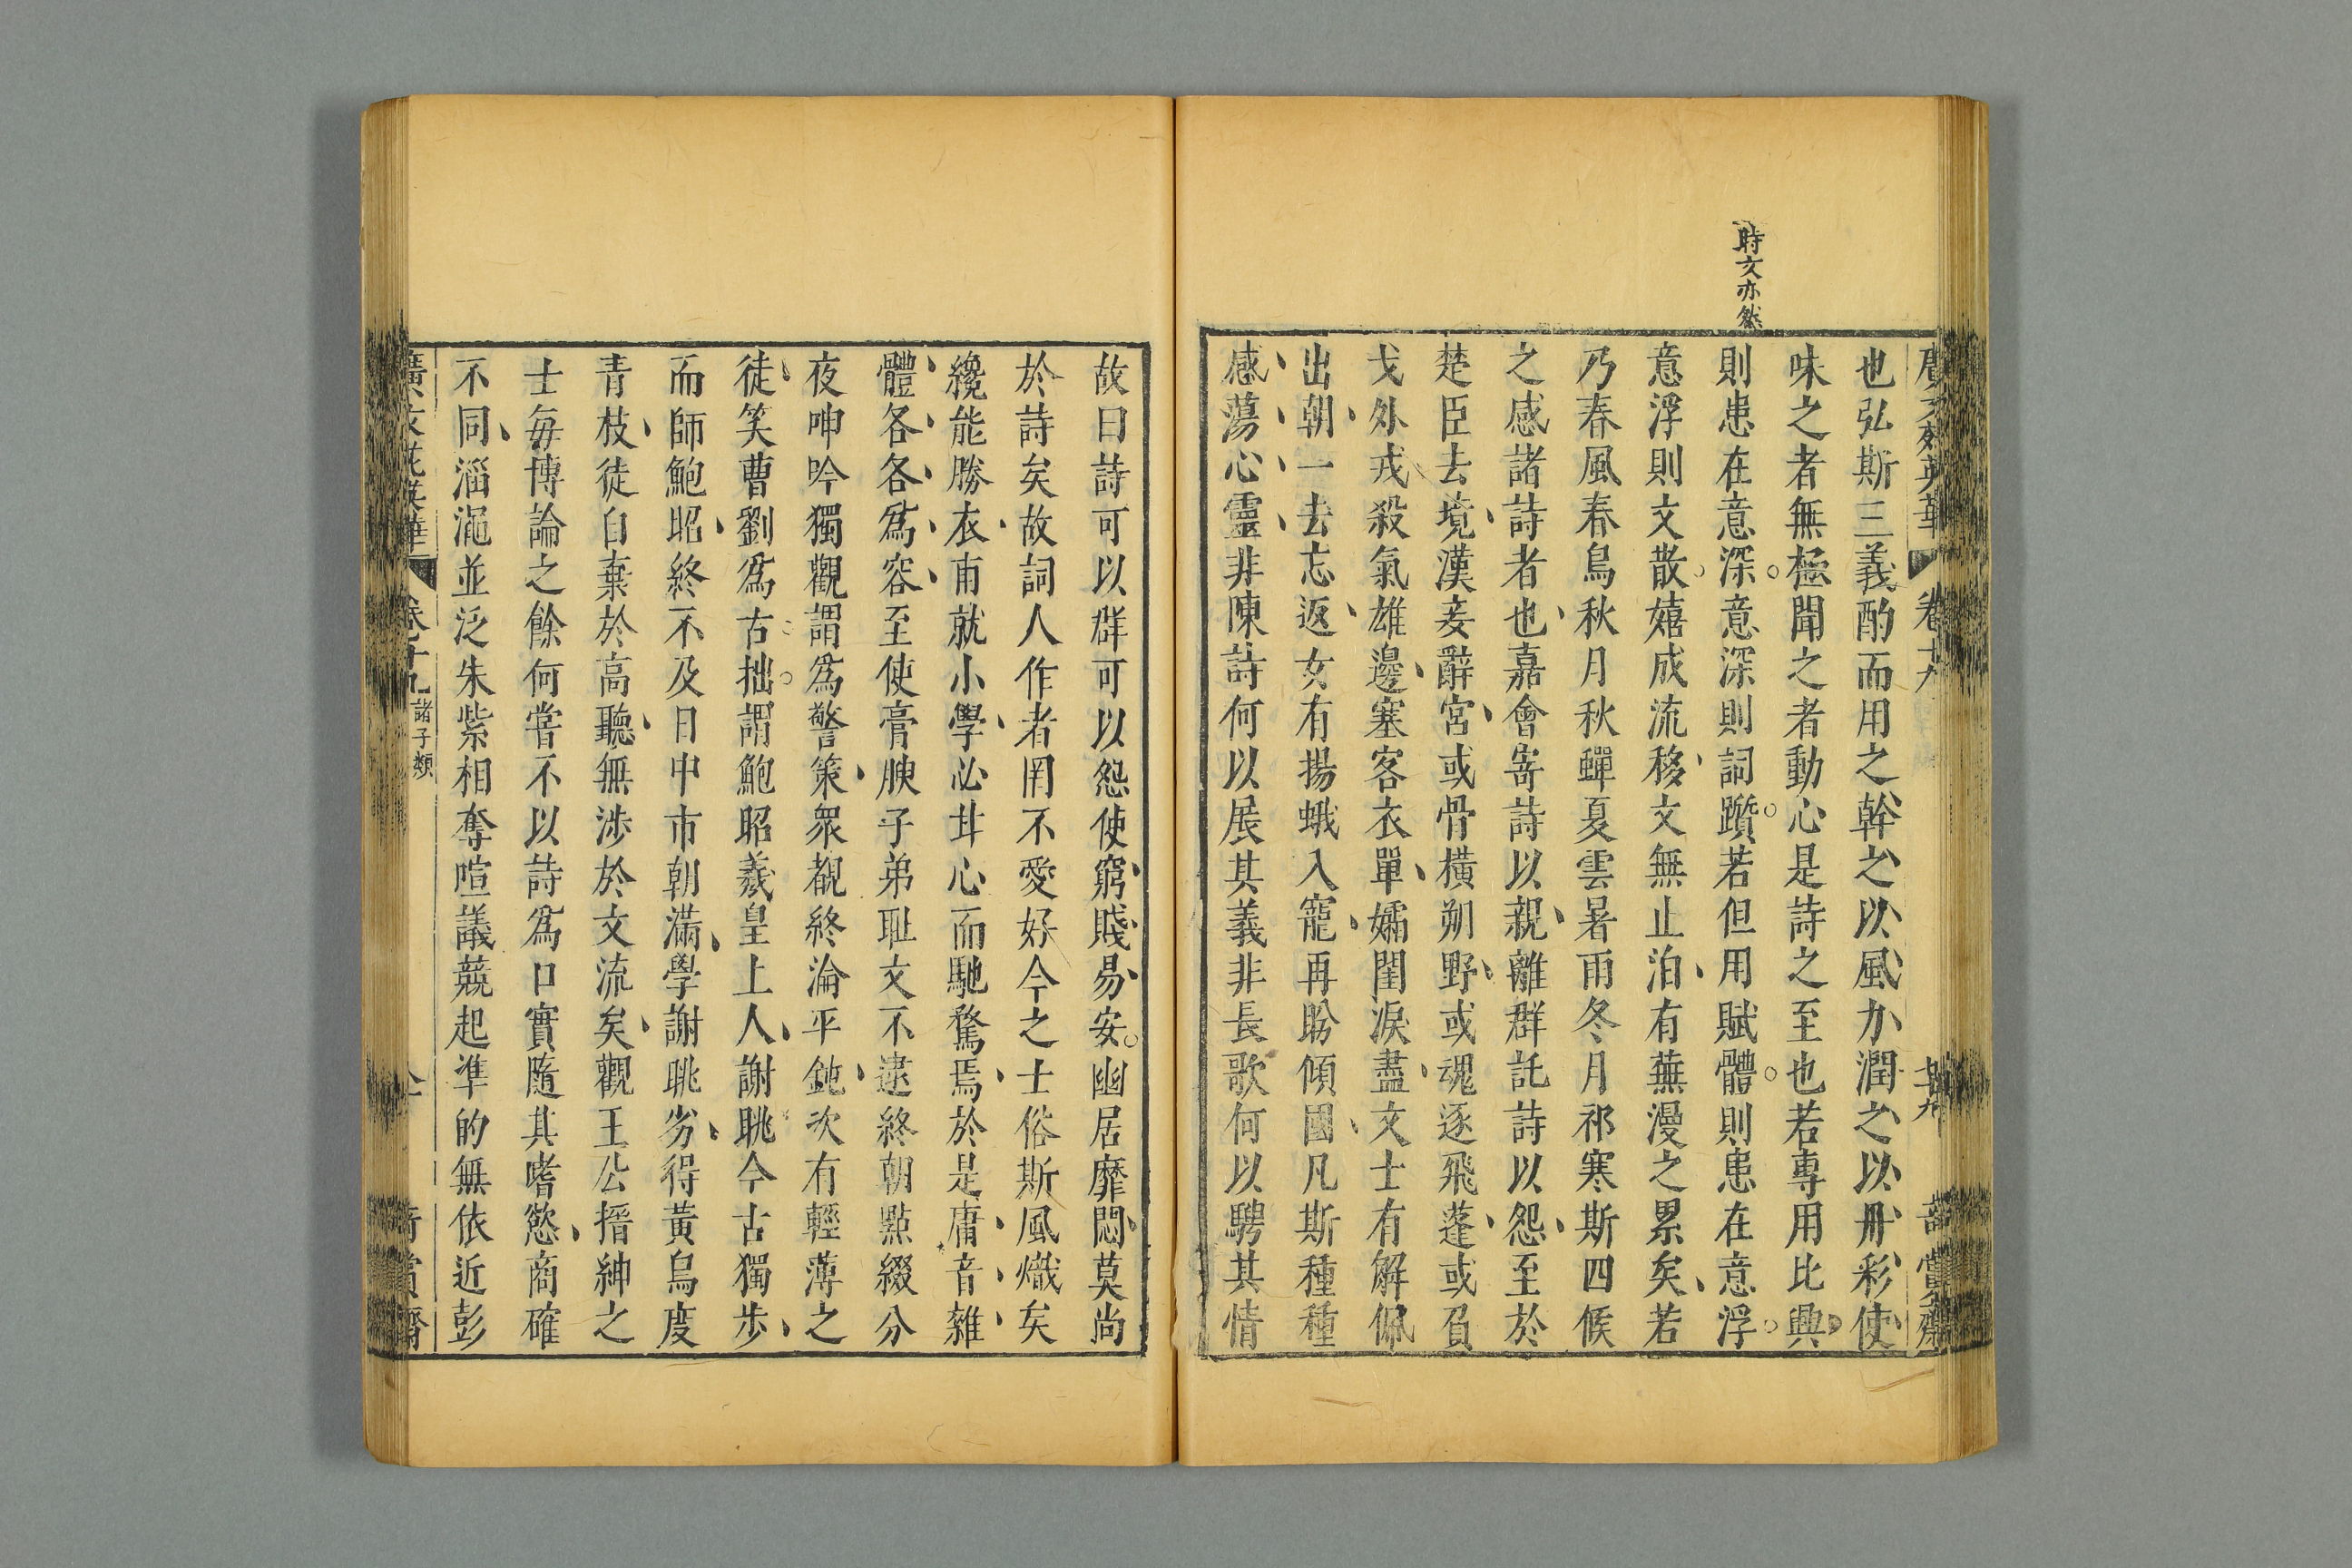 時文亦然
也弘斯三義酌而用之幹之以風力潤之以丹彩使
味之者無極聞之者動心是詩之至也若專用比興
則患在意深意深則詞躓若但用賦體則患在意浮
意浮則文散嬉成流移文無止泊有蕪漫之累矣若
乃春風春鳥秋月秋蟬夏雲暑雨冬月祁寒斯四候
之感諸詩者也嘉會寄詩以親離群託詩以怨至於
楚臣去境漢妾辭宮或骨橫朔野或魂逐飛蓬或負
戈外戎殺氣雄邊塞客衣單孀閨淚盡文士有解佩
出朝一去忘返女有揚蛾入寵再盼傾國凡斯種種
感蕩心靈非陳詩何以展其義非長歌何以騁其情
故曰詩可以群可以怨使窮賤易安幽居靡悶莫尚
於詩矣故詞人作者罔不愛好今之士俗斯風熾矣
纔能勝衣甫就小學必甘心而馳騖焉於是庸音雜
體各各爲容至使膏腴子弟耻文不逮終朝點綴分
夜呻吟獨觀謂爲警策衆覩終淪平鈍次有輕薄之
徒笑曹劉爲古拙謂鮑昭羲皇上人謝眺今古獨步
而師鮑昭終不及日中市朝滿學謝眺劣得黃鳥度
青枝徒自棄於高聽無涉於文流矣觀王公搢紳之
士每博論之餘何嘗不以詩爲口實隨其嗜慾商確
不同淄澠並泛朱紫相奪喧議競起準的無依近彭
廣文苑英華 卷十九 諸子類